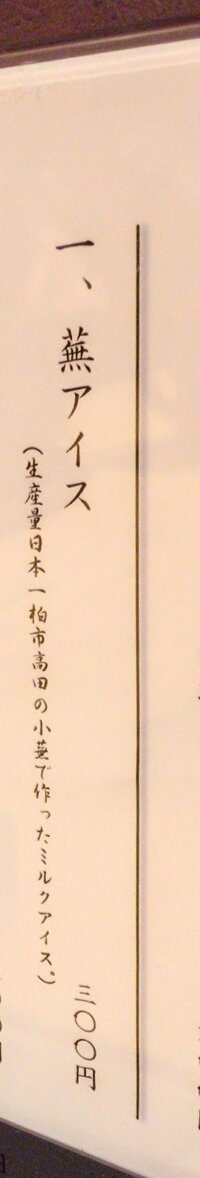 一、蕪アイス
三〇〇円
(生産量日本一柏市高田の小蕪で作ったミルクアイス。)